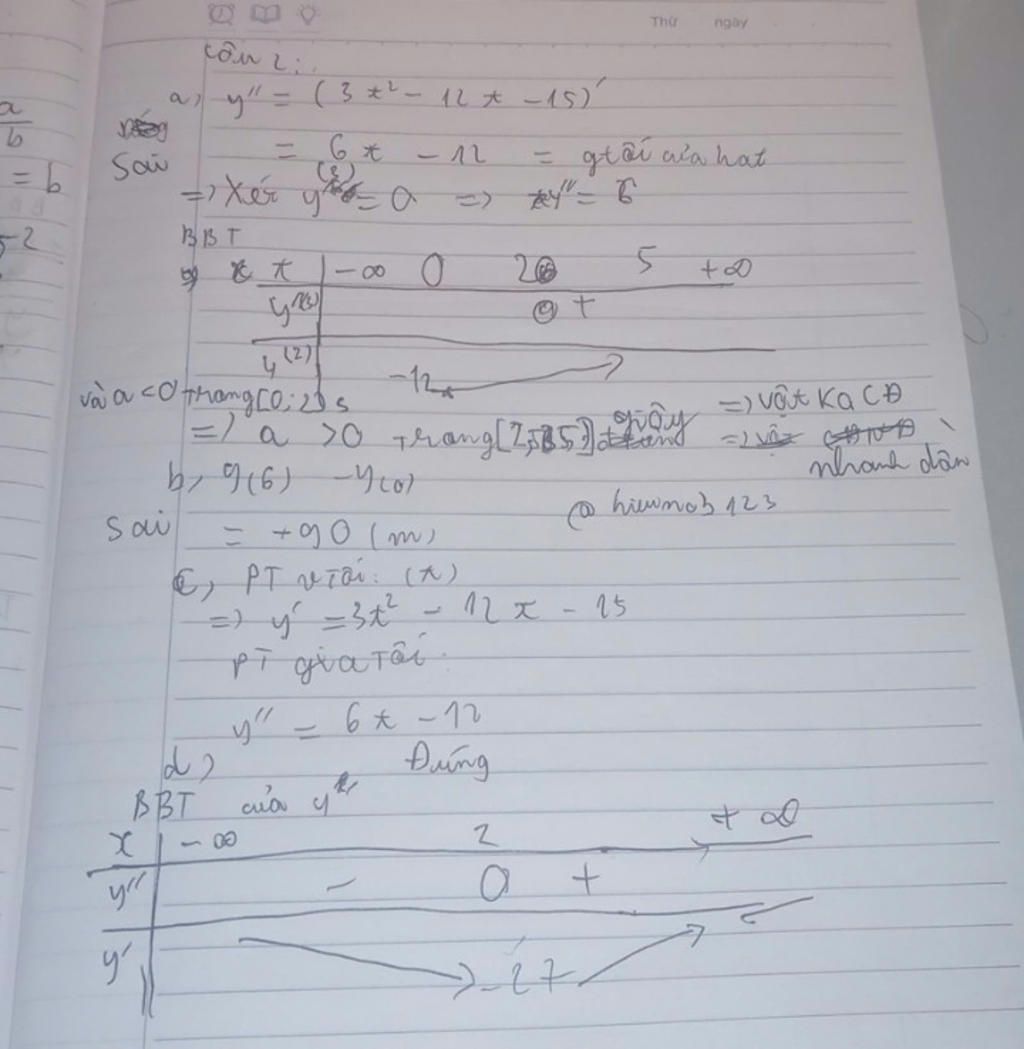 Thứ ngày
Câu 2:
a, y'' = (3x² - 12x - 15)'
Sai
= 6x - 12 = gtốc của hạt
=> Xét y⁽³⁾ = 0 => y'' = 6
BBT
x -∞ 0 2 5 +∞
y⁽³⁾ 0 +
y⁽²⁾ -12
và a<0 trong [0;2] s
=> a > 0 trong [2; 5] giây => vật KQ CĐ
nhanh dần
b, y(6) - y(0)
@ hiuwnob 123
Sai = +90 (m)
c, PT vTốc: (x)
=> y' = 3x² - 12x - 15
PT giaTốc:
y'' = 6x - 12
d) Đúng
BBT của y'
x -∞ 2 +∞
y'' - 0 +
y' -27
a
b
= b
-2